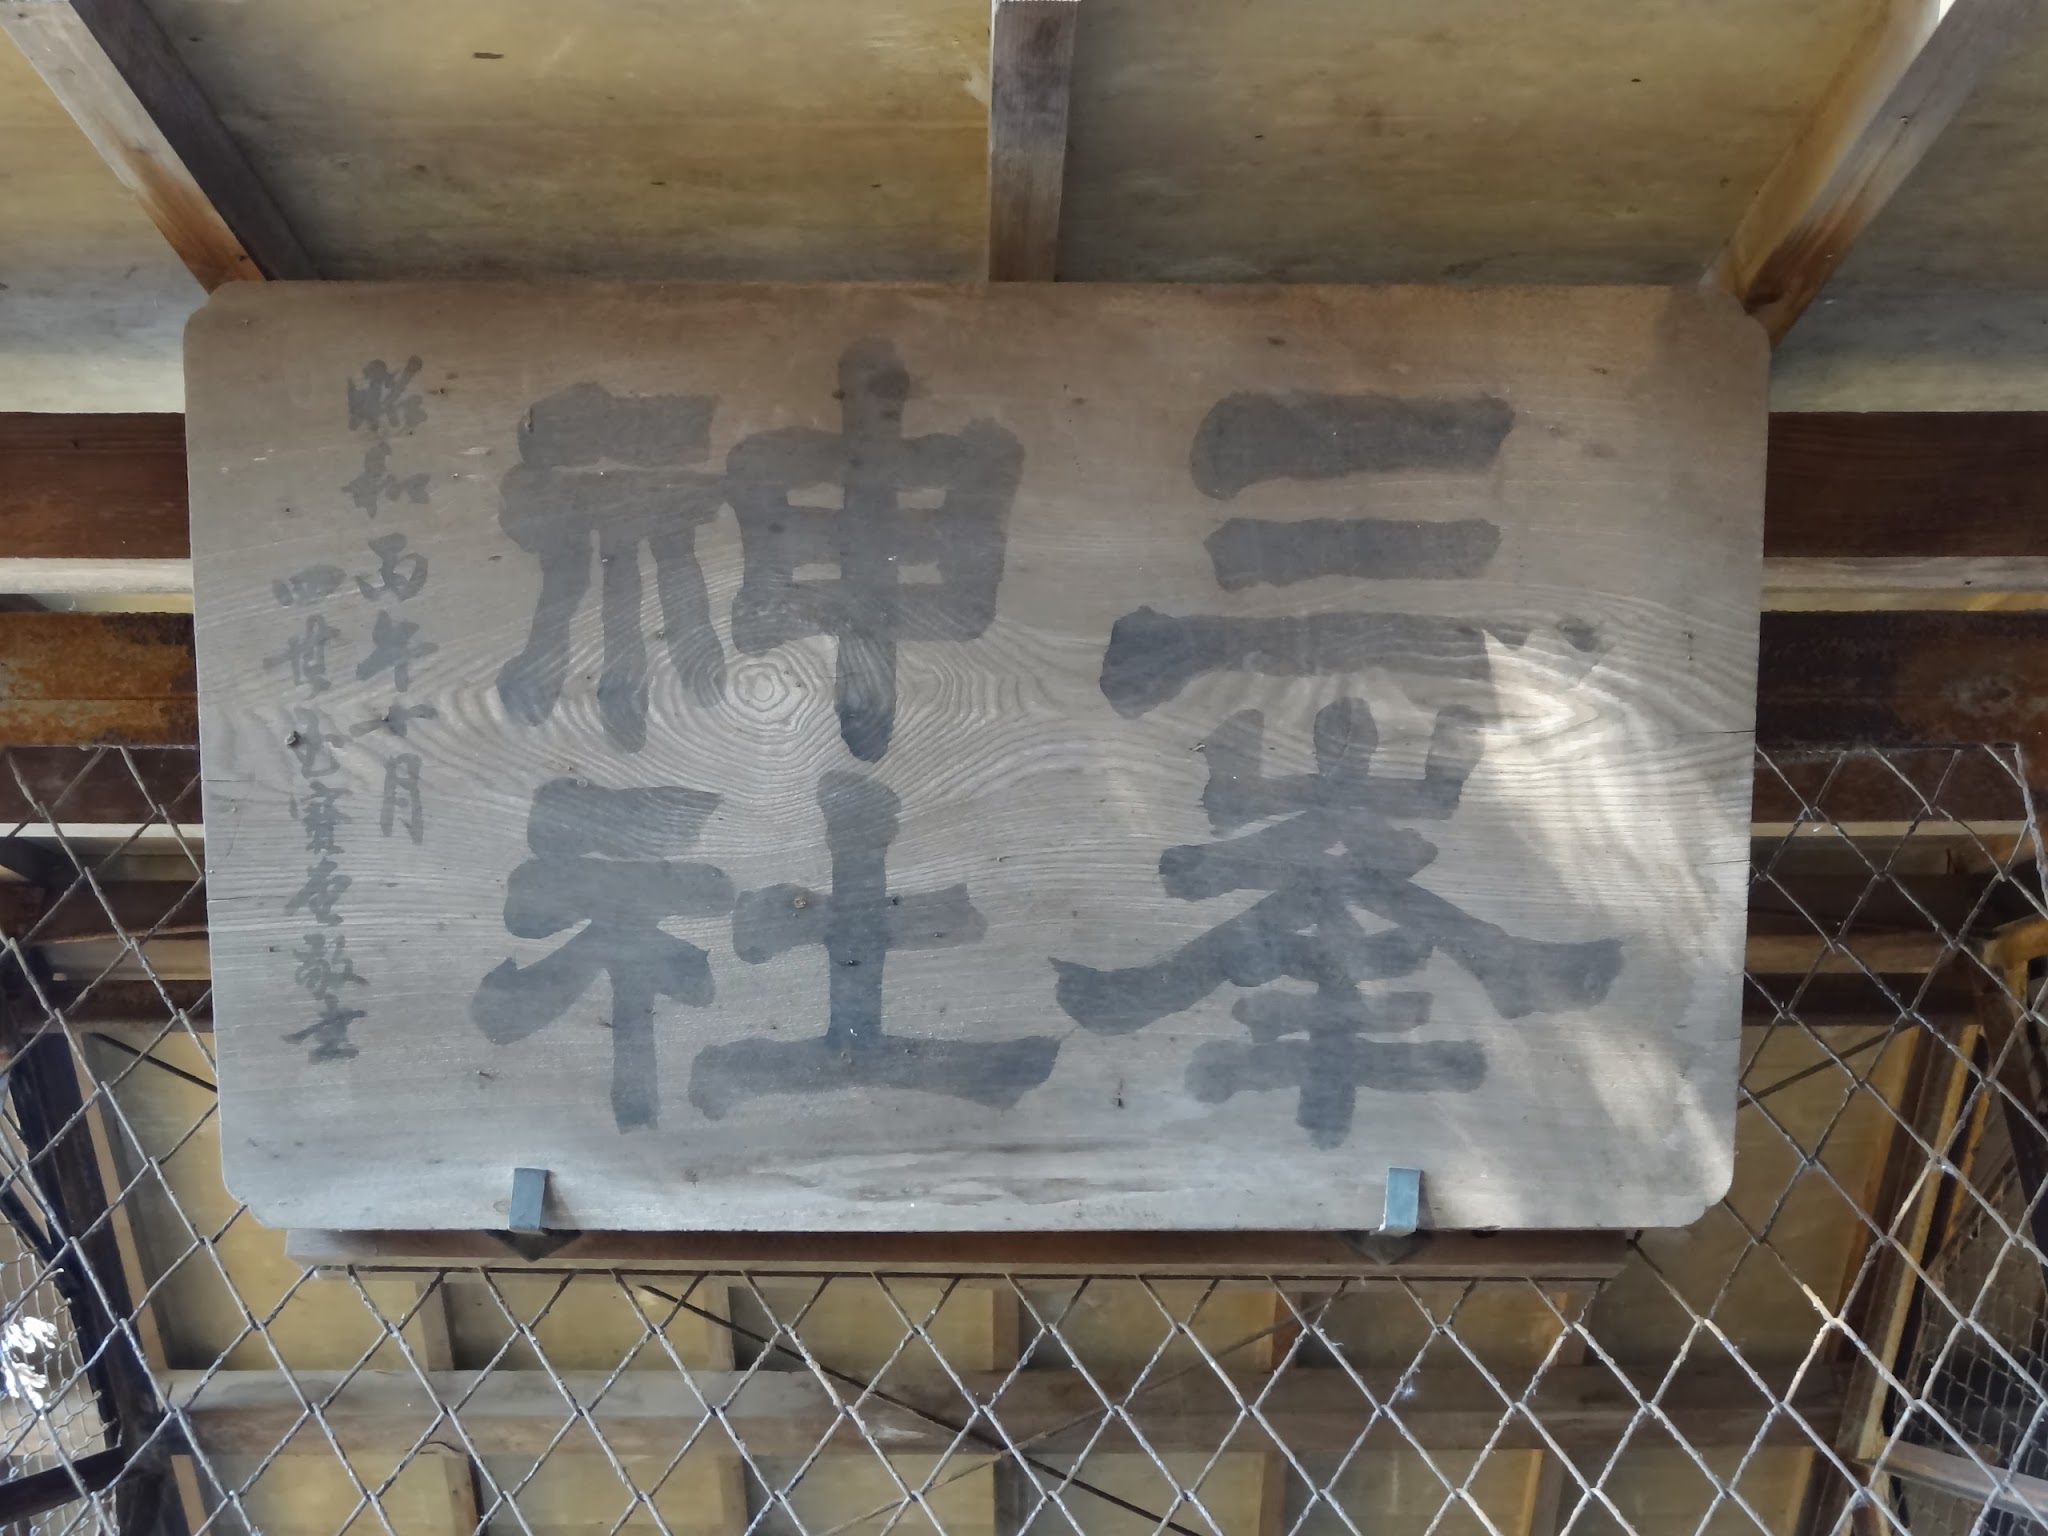 三峯
神社
昭和丙午十月
四世玉寳堂敬書